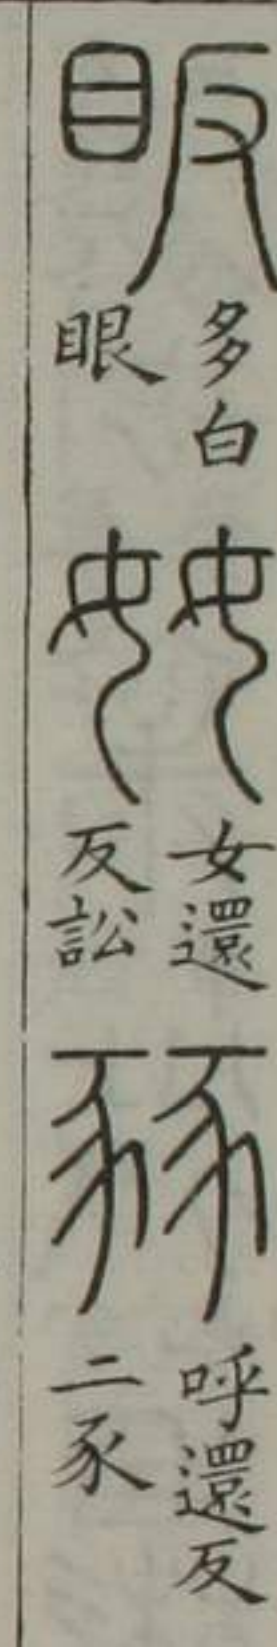 眅 多白眼 奻 女還反訟 豩 呼還反二豕